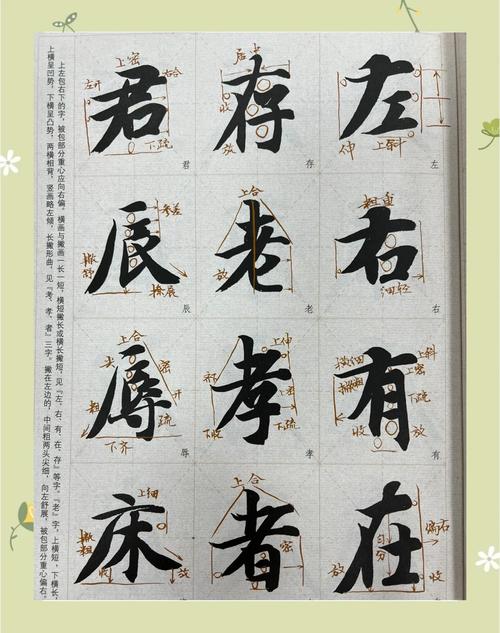 左
伸
上斜
左
粗
重
右
细轻
右
上斜
上密
下疏
有
收
放
有
偏右
在
匀分
放
收
居中
存
收
放
存
上合
老
放
老
上伸
孝
下收
下疏
孝
上合
者
密
上密
左开
右合
君
下疏
君
参差
辰
撇舒
捺展
辰
上合
密
开
辱
粗
疏
下齐
辱
上细
床
撇粗
收
放
上左包右下的字，被包部分重心应向右偏。横画与撇画一长一短，横短撇长或横长撇短，见『左、右、有、在、存』等字。『老』字，上横短，下横长，
上横呈凹势，下横呈凸势，两横相背，竖画略左倾，长撇形曲，见『考、孝、者』三字。撇在左边的，中间粗两头尖细，向左舒展，被包部分重心偏右。